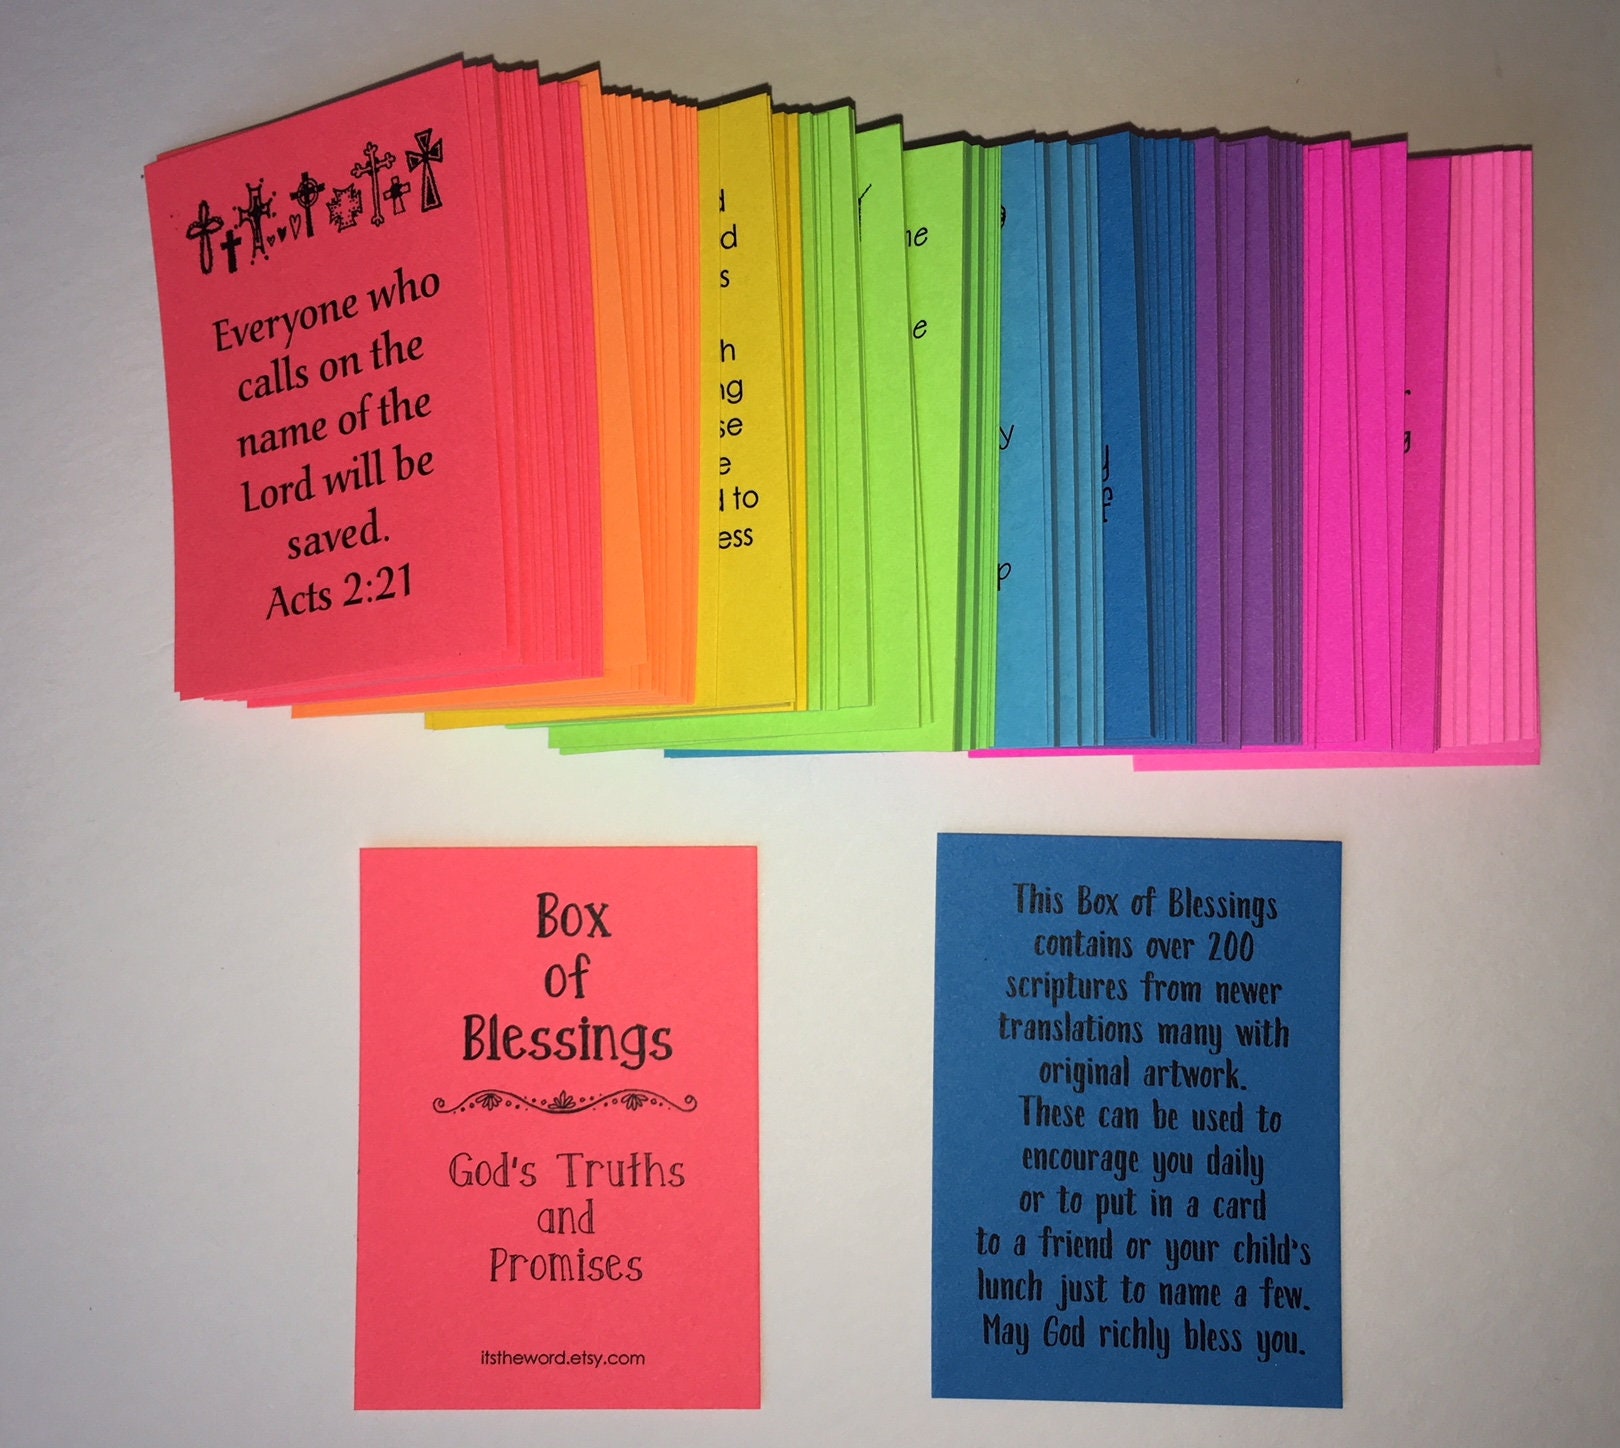 Everyone who
calls on the
name of the
Lord will be
saved.
Acts 2:21
to
Box
of
Blessings
God's Truths
and
Promises
itstheword.etsy.com
This Box of Blessings
contains over 200
scriptures from newer
translations many with
original artwork.
These can be used to
encourage you daily
or to put in a card
to a friend or your child's
lunch just to name a few.
May God richly bless you.